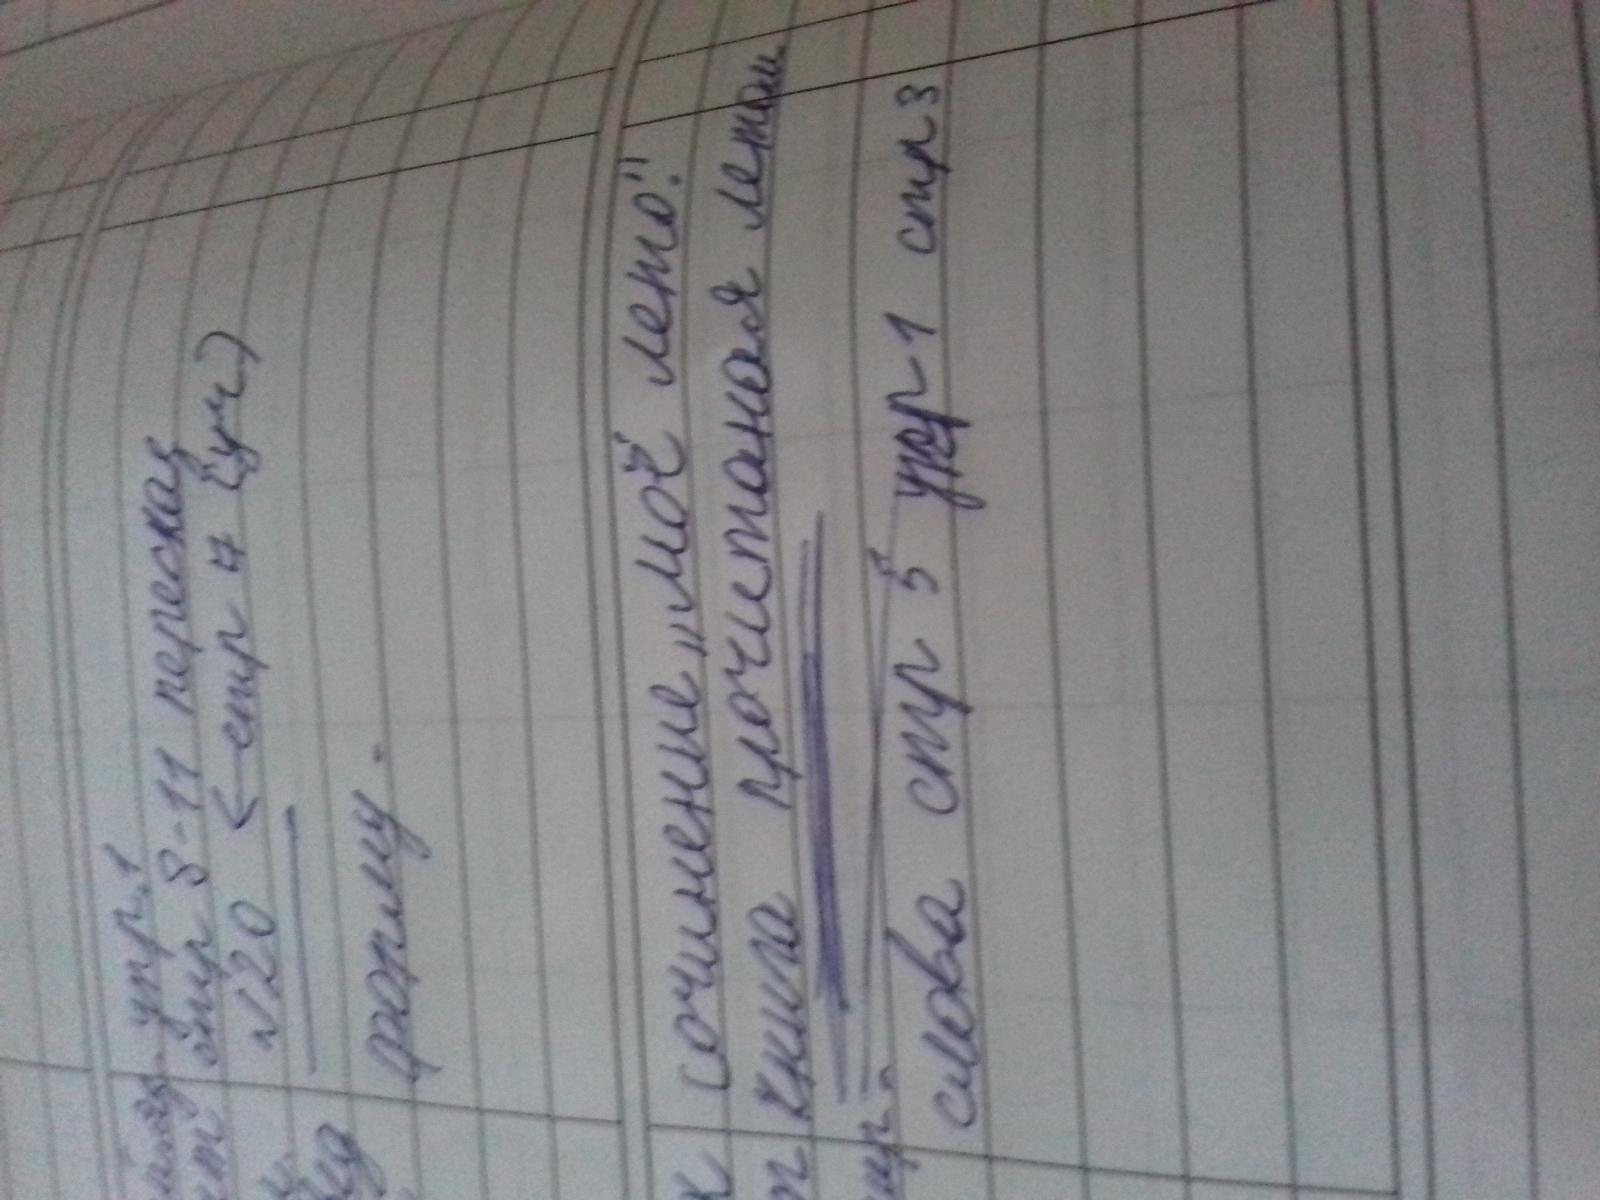 упр.1
стр 8-11 пересказ
№20 <стр 7 (уч)
форму.
сочинение „моё лето".
книга прочитаная летом
слова стр 5 упр 1 стр 3